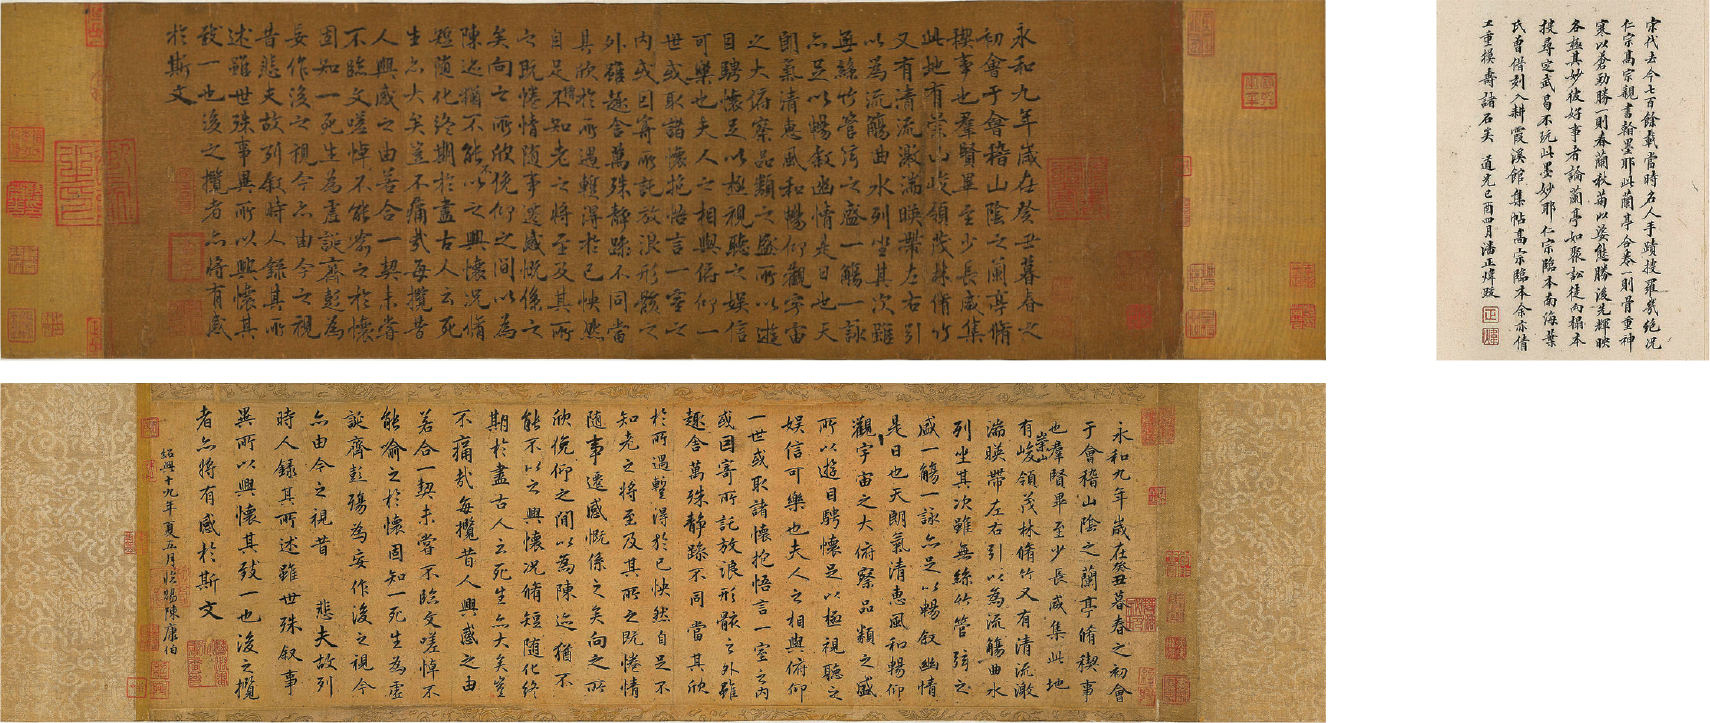 永和九年歲在癸丑暮春之
初會于會稽山陰之蘭亭脩
稧事也羣賢畢至少長咸集
此地有崇山峻領茂林脩竹
又有清流激湍暎帶左右引
以為流觴曲水列坐其次雖
無絲竹管弦之盛一觴一詠
亦足以暢叙幽情是日也天
朗氣清惠風和暢仰觀宇宙
之大俯察品類之盛所以遊
目騁懷足以極視聽之娛信
可樂也夫人之相與俯仰一
世或取諸懷抱悟言一室之
內或因寄所託放浪形骸之
外雖趣舍萬殊靜躁不同當
其欣於所遇暫得於己怏然
自足不知老之將至及其所
之既惓情随事遷感慨係之
矣向之所欣俛仰之間以為
陳迹猶不能不以之興懷況脩
短随化終期於盡古人云死
生亦大矣豈不痛哉每攬昔
人興感之由若合一契未嘗
不臨文嗟悼不能喻之於懷
固知一死生為虛誕齊彭殤為
妄作後之視今亦由今之視
昔悲夫故列叙時人錄其所
述雖世殊事異所以興懷其
致一也後之攬者亦將有感
於斯文
宋代去今七百餘載當時名人手蹟搜羅幾絕況
仁宗高宗親書翰墨耶此蘭亭合卷一則骨重神
寒以蒼勁勝一則春蘭秋菊以姿態勝後先輝映
各極其妙彼好事者論蘭亭如聚訟徒向榻本
搜尋定武曷不玩此墨妙耶仁宗臨本南海葉
氏曾借刻入耕霞溪館集帖高宗臨本余亦倩
工重摸壽諸石矣 道光己酉四月潘正煒跋
正煒
永和九年歲在癸丑暮春之初會
于會稽山陰之蘭亭脩稧事
也羣賢畢至少長咸集此地
有崇山峻領茂林脩竹又有清流激
湍暎帶左右引以為流觴曲水
列坐其次雖無絲竹管弦之
盛一觴一詠亦足以暢叙幽情
是日也天朗氣清惠風和暢仰
觀宇宙之大俯察品類之盛
所以遊目騁懷足以極視聽之
娛信可樂也夫人之相與俯仰
一世或取諸懷抱悟言一室之內
或因寄所託放浪形骸之外雖
趣舍萬殊靜躁不同當其欣
於所遇暫得於己怏然自足不
知老之將至及其所之既惓情
随事遷感慨係之矣向之所
欣俛仰之間以為陳迹猶不
能不以之興懷況脩短随化終
期於盡古人云死生亦大矣豈
不痛哉每攬昔人興感之由
若合一契未嘗不臨文嗟悼不
能喻之於懷固知一死生為虛
誕齊彭殤為妄作後之視今
亦由今之視昔 悲夫故列
時人錄其所述雖世殊叙事
異所以興懷其致一也後之攬
者亦將有感於斯文
紹興十九年夏五月臨賜陳康伯